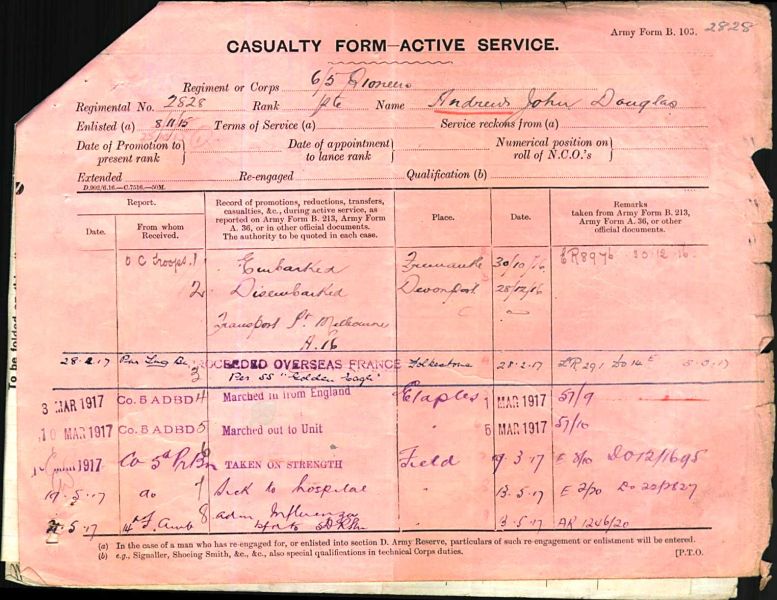 Army Form B. 103. 2828
CASUALTY FORM—ACTIVE SERVICE.
Regiment or Corps 6/5 Pioneers
Regimental No. 2828 Rank Name Andrews John Douglas
Enlisted (a) 8.11.15 Terms of Service (a) Service reckons from (a)
Date of Promotion to present rank } Date of appointment to lance rank } Numerical position on roll of N.C.O.'s }
Extended Re-engaged Qualification (b)
D.902/6.16.—C.7516.—50M.
Report.
Date. From whom Received.
Record of promotions, reductions, transfers, casualties, &c., during active service, as reported on Army Form B. 213, Army Form A. 36, or in other official documents. The authority to be quoted in each case.
Place. Date.
Remarks taken from Army Form B. 213, Army Form A. 36, or other official documents.
O C Troops. 1 Embarked Fremantle 30/10/16 ER8976 30.12.16
2 Disembarked Devonport 28/12/16
Transport Melbourne
A.16
28.2.17 3 PROCEEDED OVERSEAS FRANCE Folkestone 28.2.17
Per SS "Golden Eagle"
3 MAR 1917 Co. 5 ADBD 4 Marched in from England Etaples 1 MAR 1917 57/9
10 MAR 1917 Co. 5 ADBD 5 Marched out to Unit " 6 MAR 1917 57/10
MAR 1917 Co 5th Pr Bn 6 TAKEN ON STRENGTH Field 9.3.17 E 8/10 DO12/1695
19.5.17 do 7 Sick to hospital " 13.5.17 E 2/20 Do 20/2827
5.17 14th F. Amb 8 adm Influenza " 13.5.17 AR 1246/20
(a) In the case of a man who has re-engaged for, or enlisted into section D. Army Reserve, particulars of such re-engagement or enlistment will be entered.
(b) e.g., Signaller, Shoeing Smith, &c., &c., also special qualifications in technical Corps duties. [P.T.O.
To be folded on th